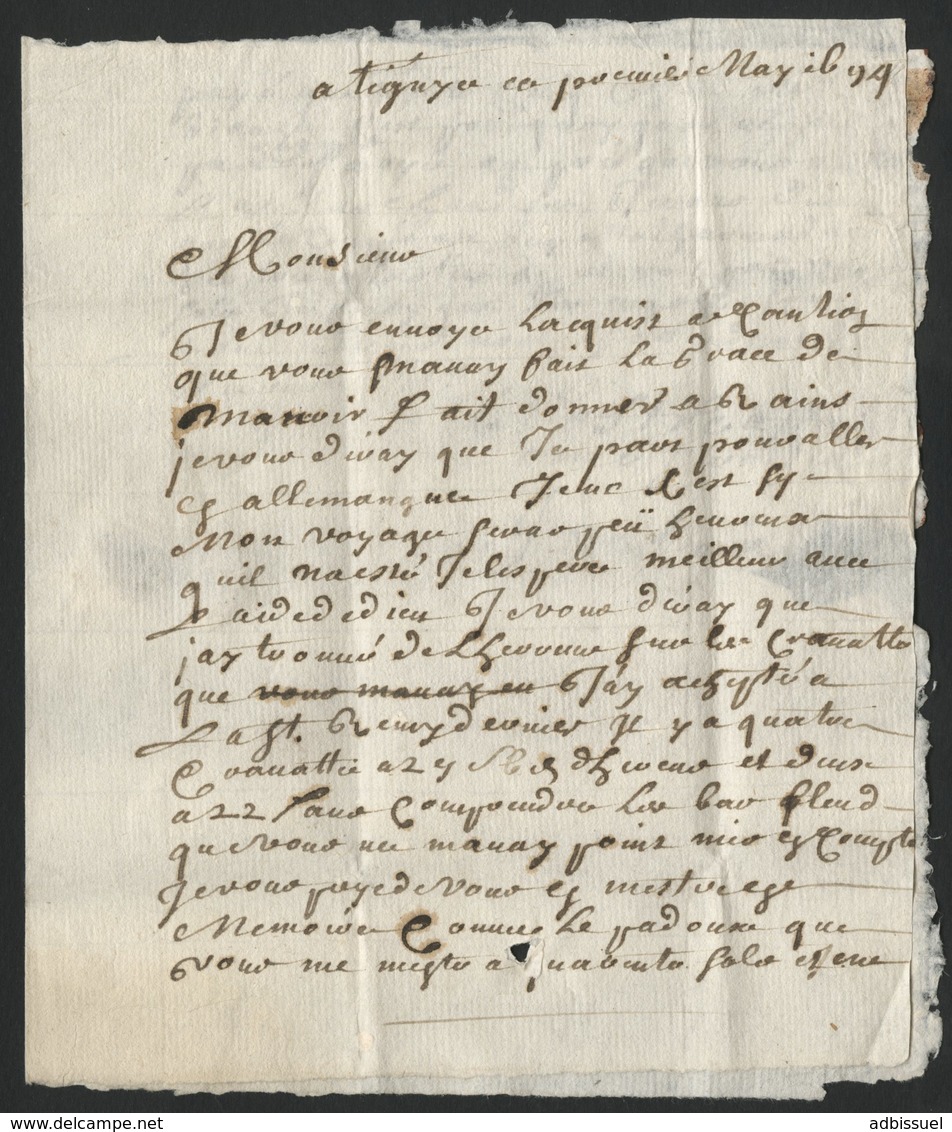 a tignye ce premier May 1694
Monsieur
Je vous envoye Lacquist a Caution
que vous mavay fait La Grace de
mavoir fait donner a Rains
je vous diray que Je pars pour aller
en allemangne Jeuc cest sy
Mon voyage serat peü heureux
quil na esté Jelespere meilleur avec
Laide de dieu Je vous diray que
jay trouvé de Lherreur sur les Cravatte
que vous mavay en Jay achepté a
La St. Remy dernier Il y a quatre
Cravatte a 27 et deux
a 22 sans Comprendre Les bas
que vous ne mavay point mis en Compte
Je vous prye de vous en mestre
Memoire Comme Le padoux que
vous me meste a quarente sols
adbissuel